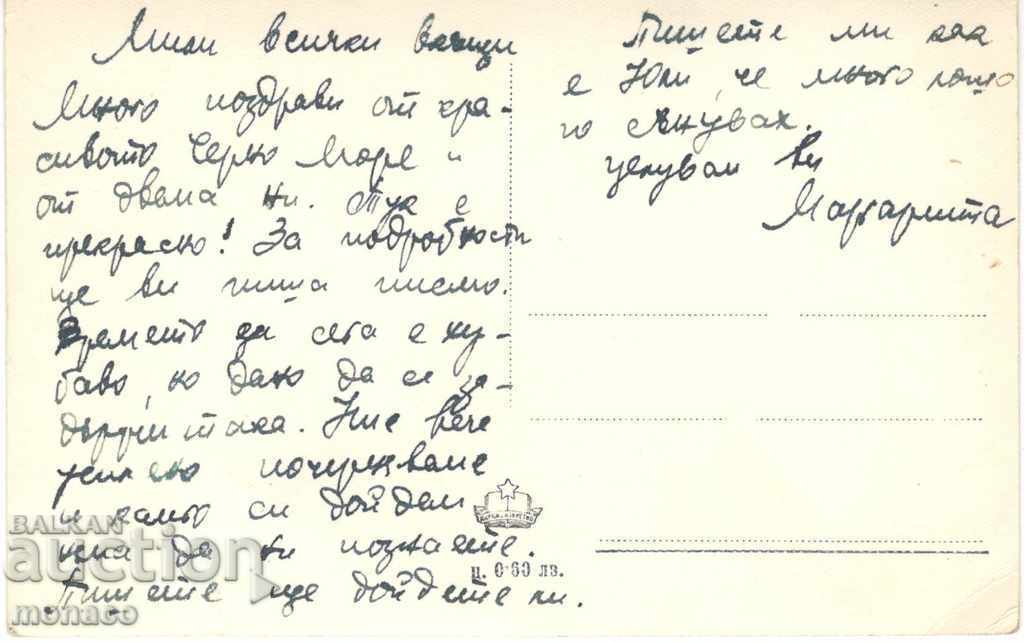 Мили всички вкъщи
Много поздрави от кра-
сивото Черно Море и
от двама ни. Тук е
прекрасно! За подробности
ще ви пиша писмо.
Времето до сега е ху-
баво, но дано да се за-
държи така. Ние вече
успешно почерняваме
и като си дойдем
няма да ни познаете.
Пишете ще дойдете ли.
Пишете ми как
е Юли, че много лошо
го сънувах.
целувам ви
Маргарита
ц. 0·60 лв.
BALKAN
auction
monaco